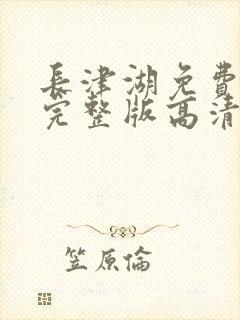 長津湖免費
完整版高清
笠原倫